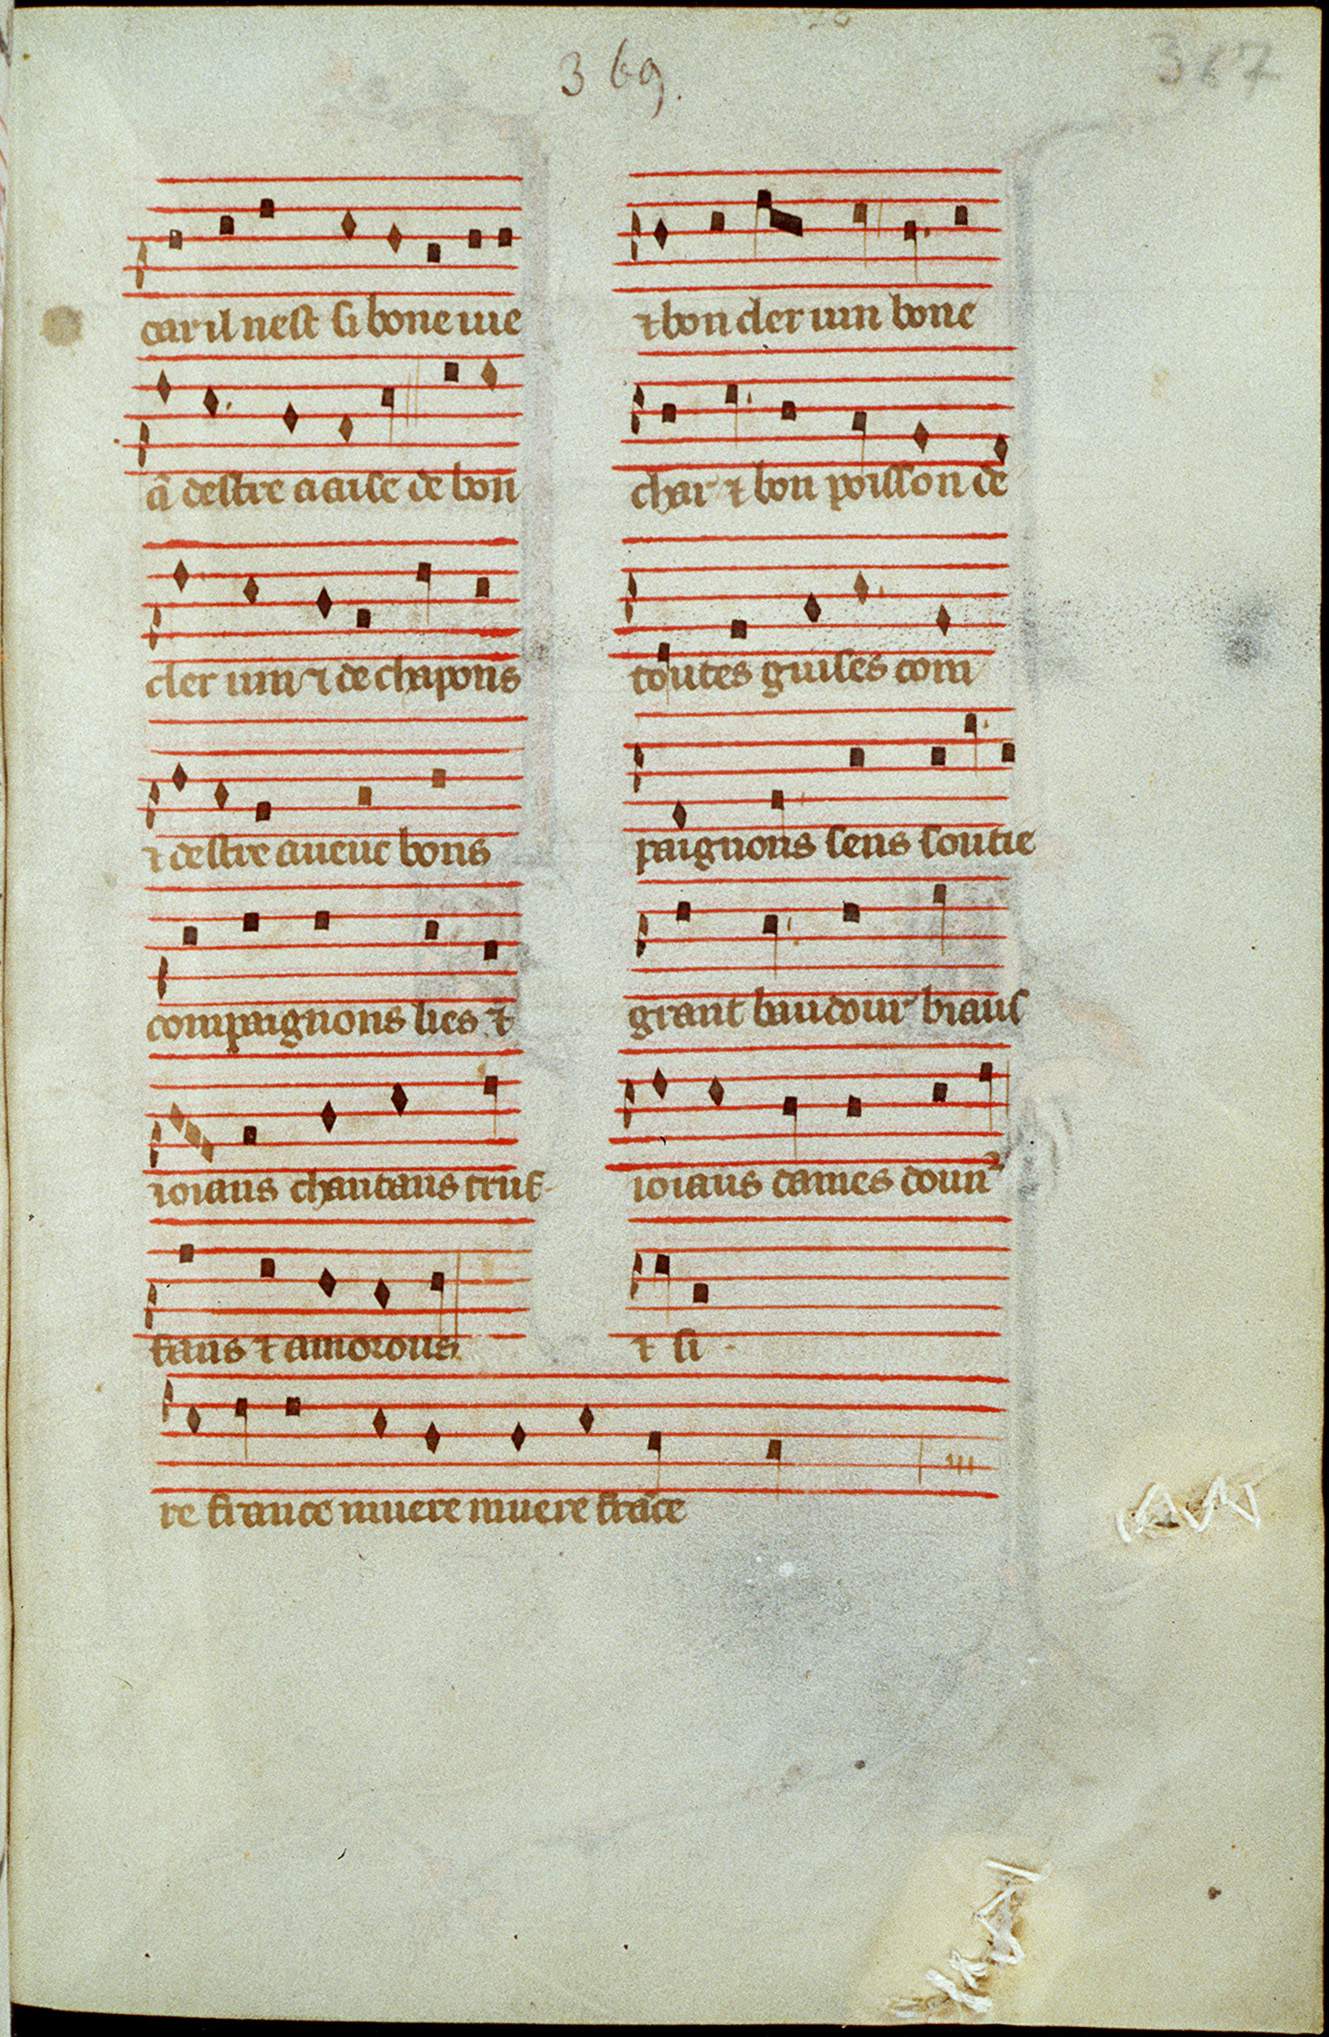 369.
317
car il nest si bone uie
cū destre a aise de bon
cler uin ⁊ de chapons
⁊ destre aueuc bons
compaignons lies ⁊
ioians chantans truf-
fans ⁊ amorous
⁊ bon cler uin bone
char ⁊ bon poisson de
toutes guises com
paignons sens soutie
grant baudour biaus
ioiaus dames doun
⁊ si
re france muere muere frāce